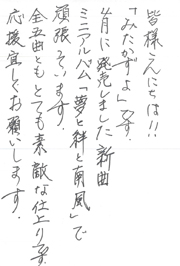 皆様こんにちは!!
「みたかずよ」です。
4月に発売しました新曲
ミニアルバム「夢と絆と南風」で
頑張っています。
全五曲ともとても素敵な仕上りです。
応援宜しくお願いします。